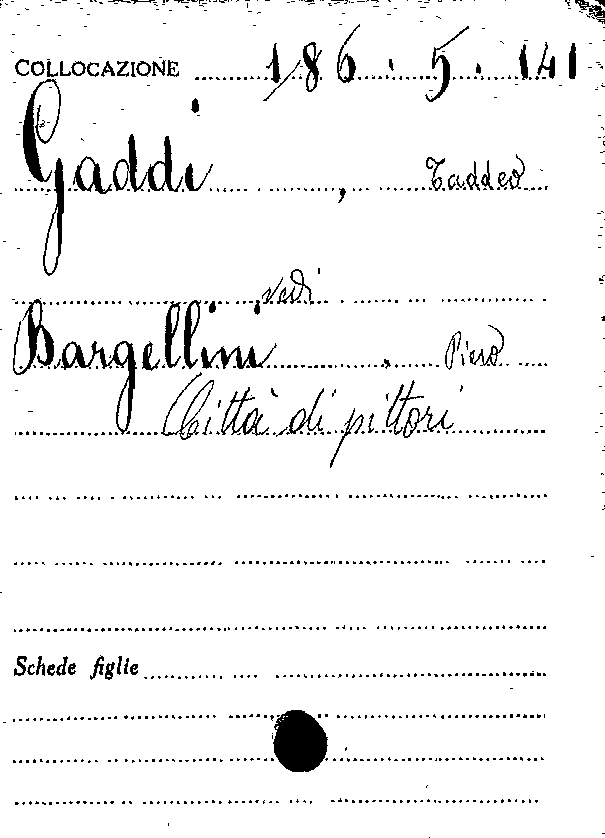 COLLOCAZIONE 186.5.141
Gaddi, Taddeo
vedi
Bargellini, Piero
Città di pittori
Schede figlie